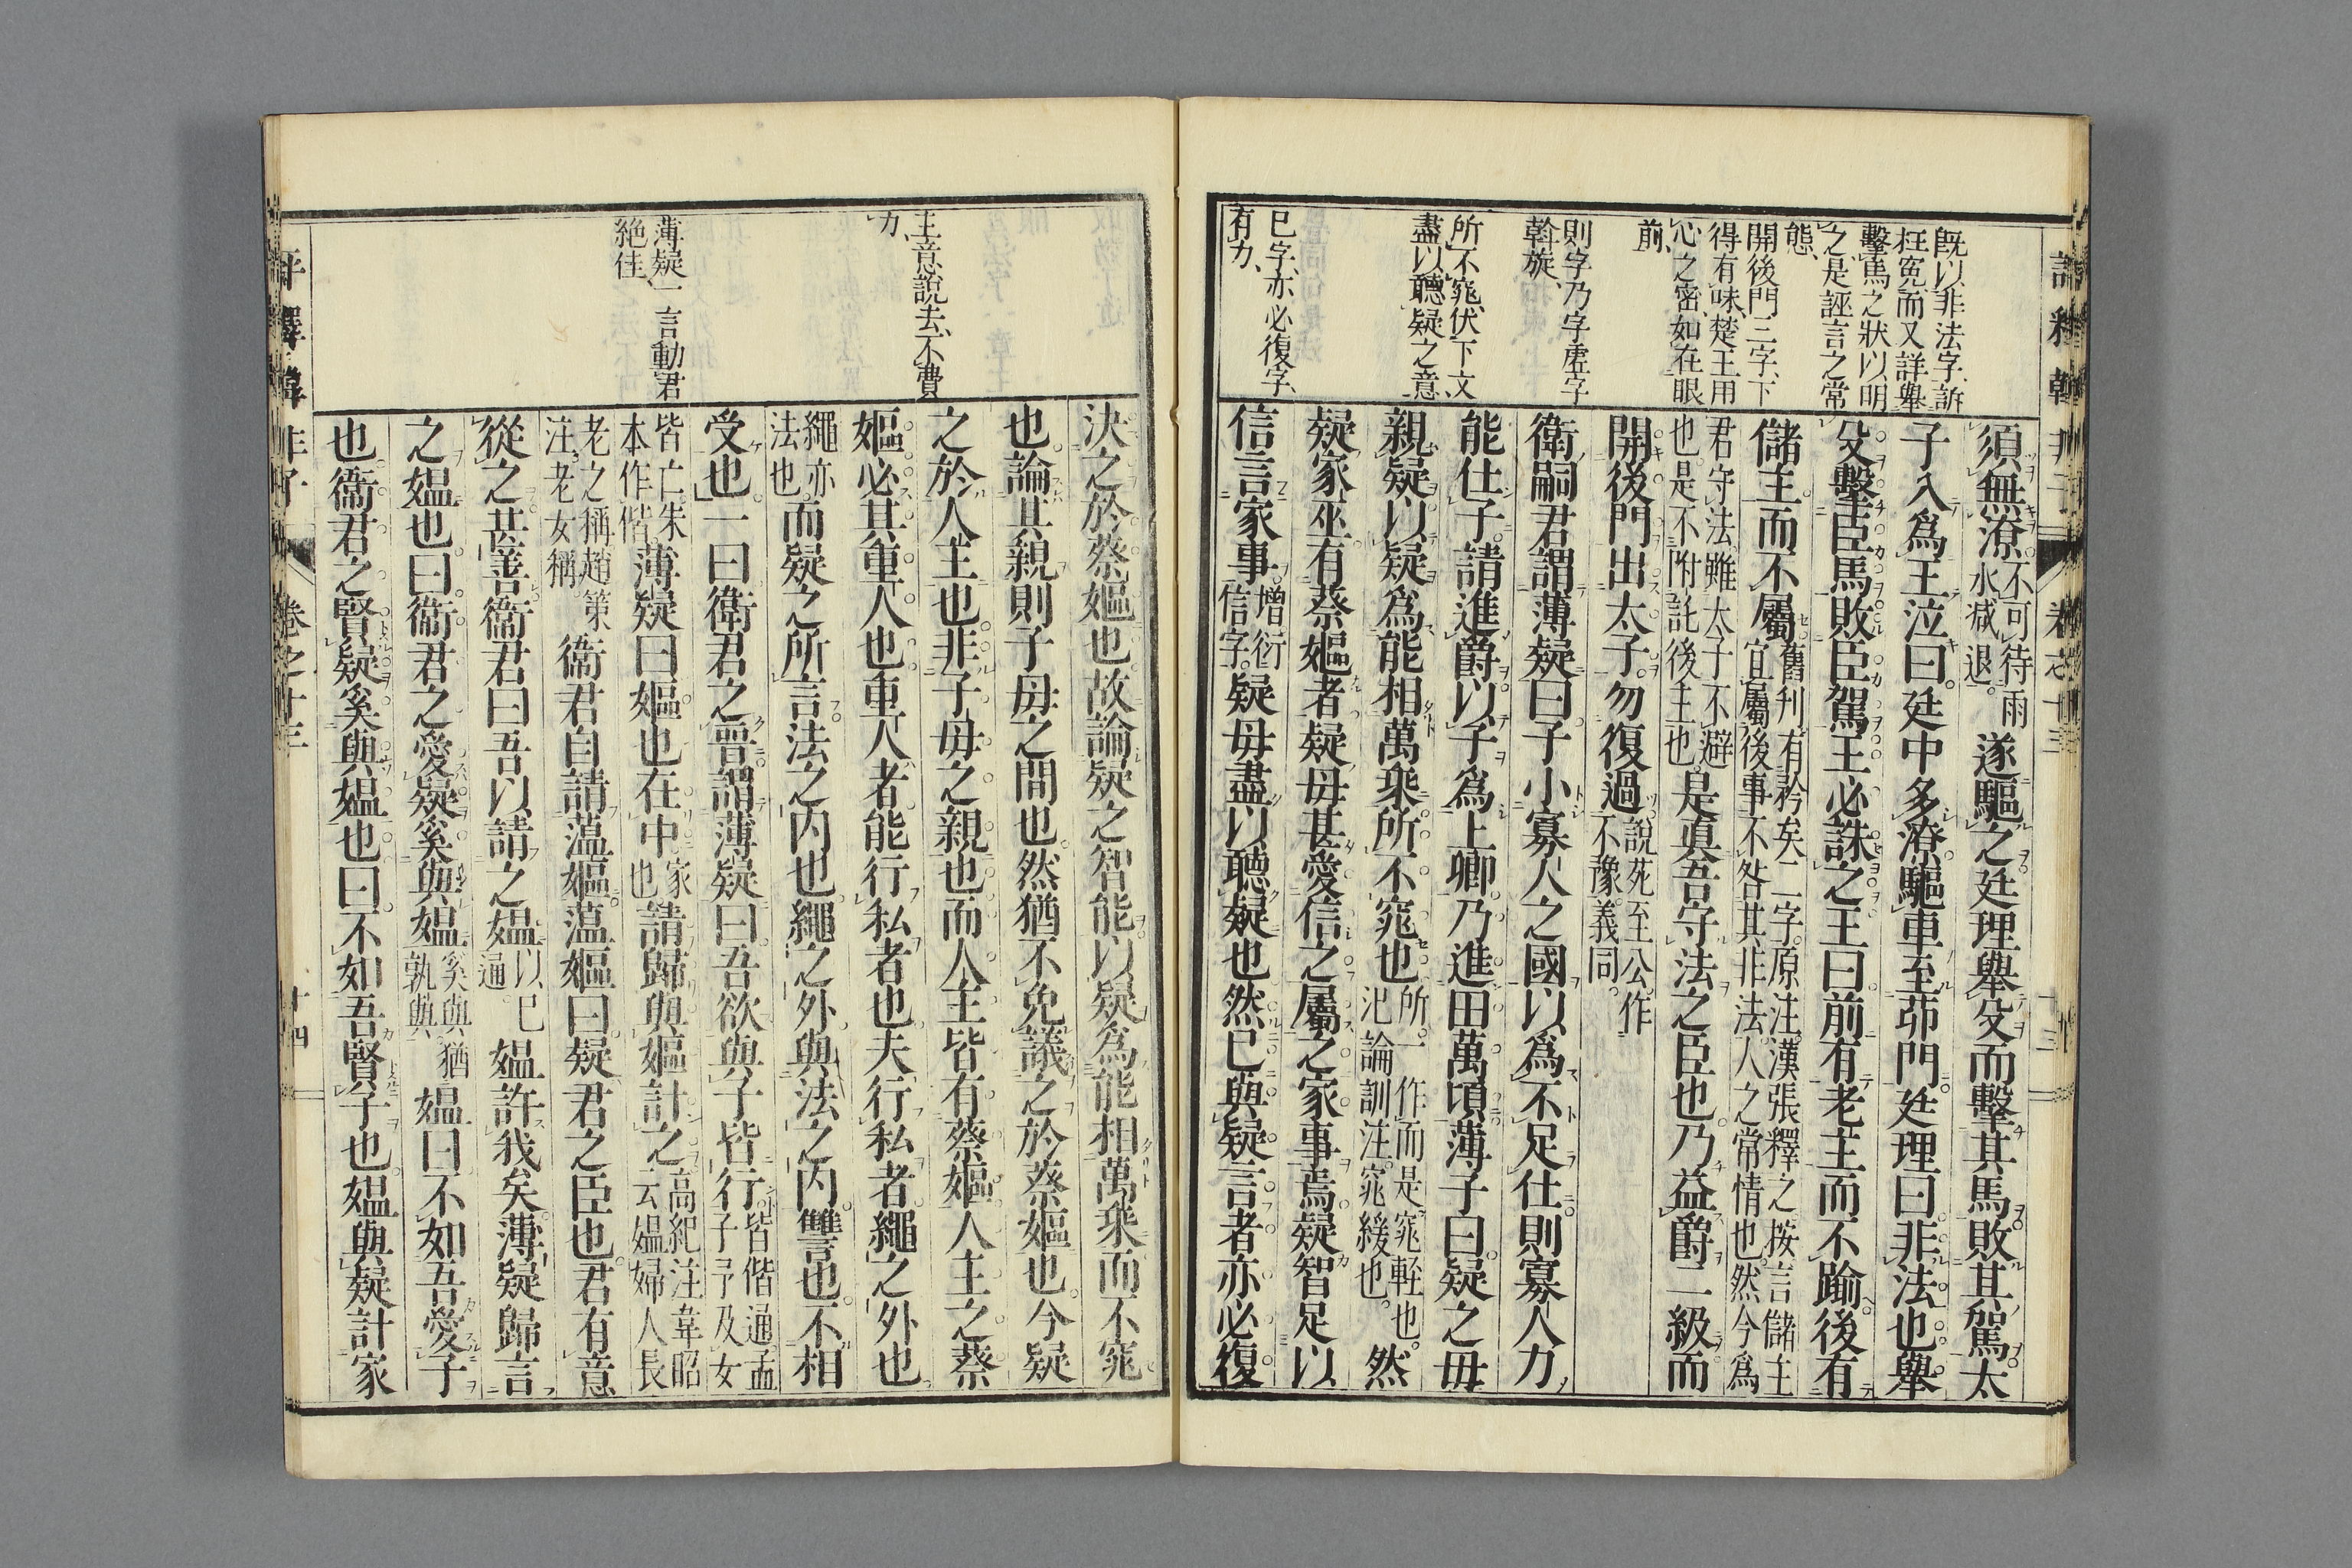 既以非法字訴
枉冤而又詳舉
擊馬之狀以明
之是誣言之常
態
開後門三字下
得有味楚王用
心之密如在眼
前
則字乃字虛字
斡旋
所不窕伏下文
盡以聽疑之意
巳字亦必復字
有力
須無潦不可待雨水減退遂驅之廷理舉殳而擊其馬敗其駕太
子入爲王泣曰廷中多潦驅車至茆門廷理曰非法也舉
殳擊臣馬敗臣駕王必誅之王曰前有老主而不踰後有
儲主而不屬舊刋有矜矣二字原注漢張釋之按言儲主宜屬後事不咎其非法人之常情也然今爲
君守法雖太子不避也是不附託後主也是眞吾守法之臣也乃益爵二級而
開後門出太子勿復過說苑至公作不豫義同
衛嗣君謂薄疑曰子小寡人之國以爲不足仕則寡人力
能仕子請進爵以子爲上卿乃進田萬頃薄子曰疑之毋
親疑以疑爲能相萬乘所不窕也所一作而是窕輊也氾論訓注窕緩也然
疑家巫有蔡嫗者疑毋甚愛信之屬之家事焉疑智足以
信言家事增衍信字疑毋盡以聽疑也然已與疑言者亦必復
評釋韓非子 卷之十三 十四
王意說去不費
力
薄疑一言動君
絶佳
決之於蔡嫗也故論疑之智能以疑爲能相萬乘而不窕
也論其親則子毋之間也然猶不免議之於蔡嫗也今疑
之於人主也非子毋之親也而人主皆有蔡嫗人主之蔡
嫗必其重人也重人者能行私者也夫行私者繩之外也
繩亦法也而疑之所言法之内也繩之外與法之内讐也不相
受也一曰衛君之晉謂薄疑曰吾欲與子皆行皆偕通孟子予及女
皆亡朱本作偕薄疑曰嫗也在中家也請歸與嫗計之高紀注韋昭云媼婦人長
老之稱趙策注老女稱衛君自請薀嫗薀嫗曰疑君之臣也君有意
從之甚善衛君曰吾以請之媼以已通媼許我矣薄疑歸言
之媼也曰衛君之愛疑奚與媼奚與猶孰與媼曰不如吾愛子
也衛君之賢疑奚與媼也曰不如吾賢子也媼與疑計家